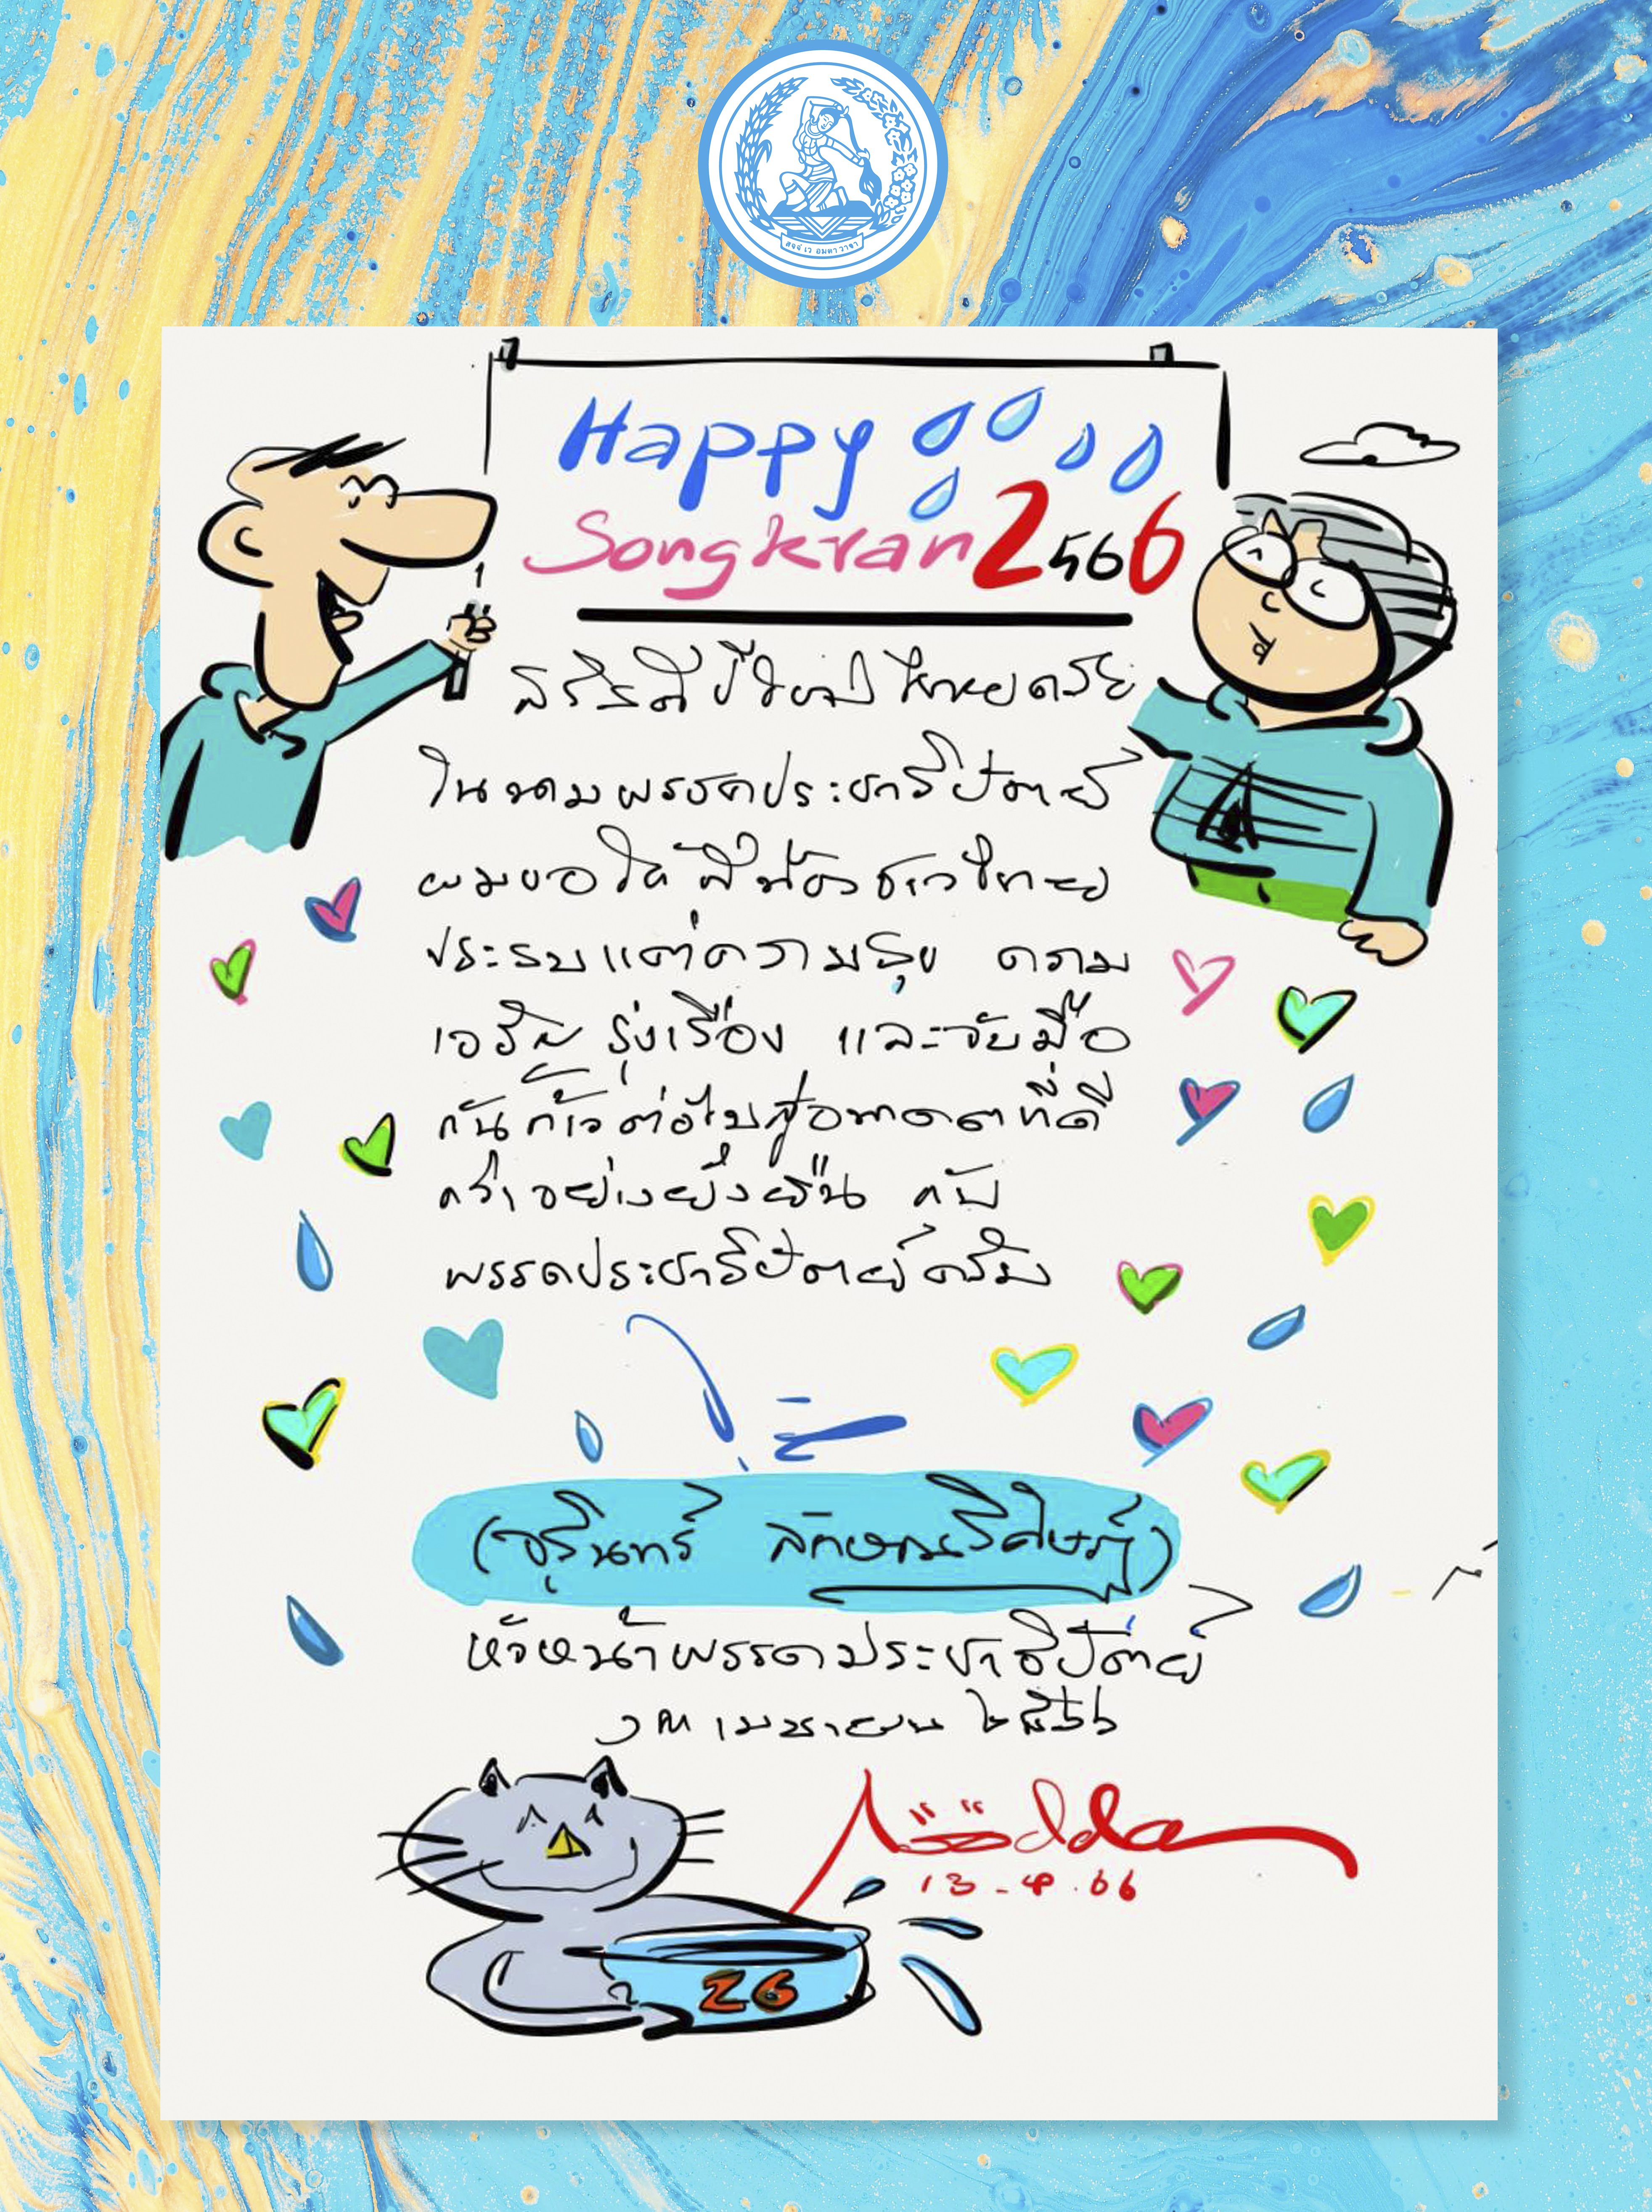 สจฺจํ เว อมตา วาจา
Happy
Songkran 2566
สวัสดีปีใหม่ไทยครับ
ในนามพรรคประชาธิปัตย์
ผมขอให้พี่น้องชาวไทย
ประสบแต่ความสุข ความ
เจริญ รุ่งเรือง และจับมือ
กันก้าวต่อไปสู่อนาคตที่ดี
กว่าอย่างยั่งยืน กับ
พรรคประชาธิปัตย์ครับ
(จุรินทร์ ลักษณวิศิษฏ์)
หัวหน้าพรรคประชาธิปัตย์
๑๓ เมษายน ๒๕๖๖
13-4.66
26